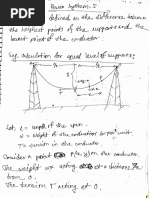 Power System. I
defined as the difference between
the highest points of the support and the
lowest point of the conductor.
Sag calculation for equal level of supports:
Let, l = length of the span
w = weight of the conductor per unit
T = tension in the conductor
Consider a point P(x, y) on the conductor.
The weight wx acting at a distance x/2
from O.
The tension T acting at O.